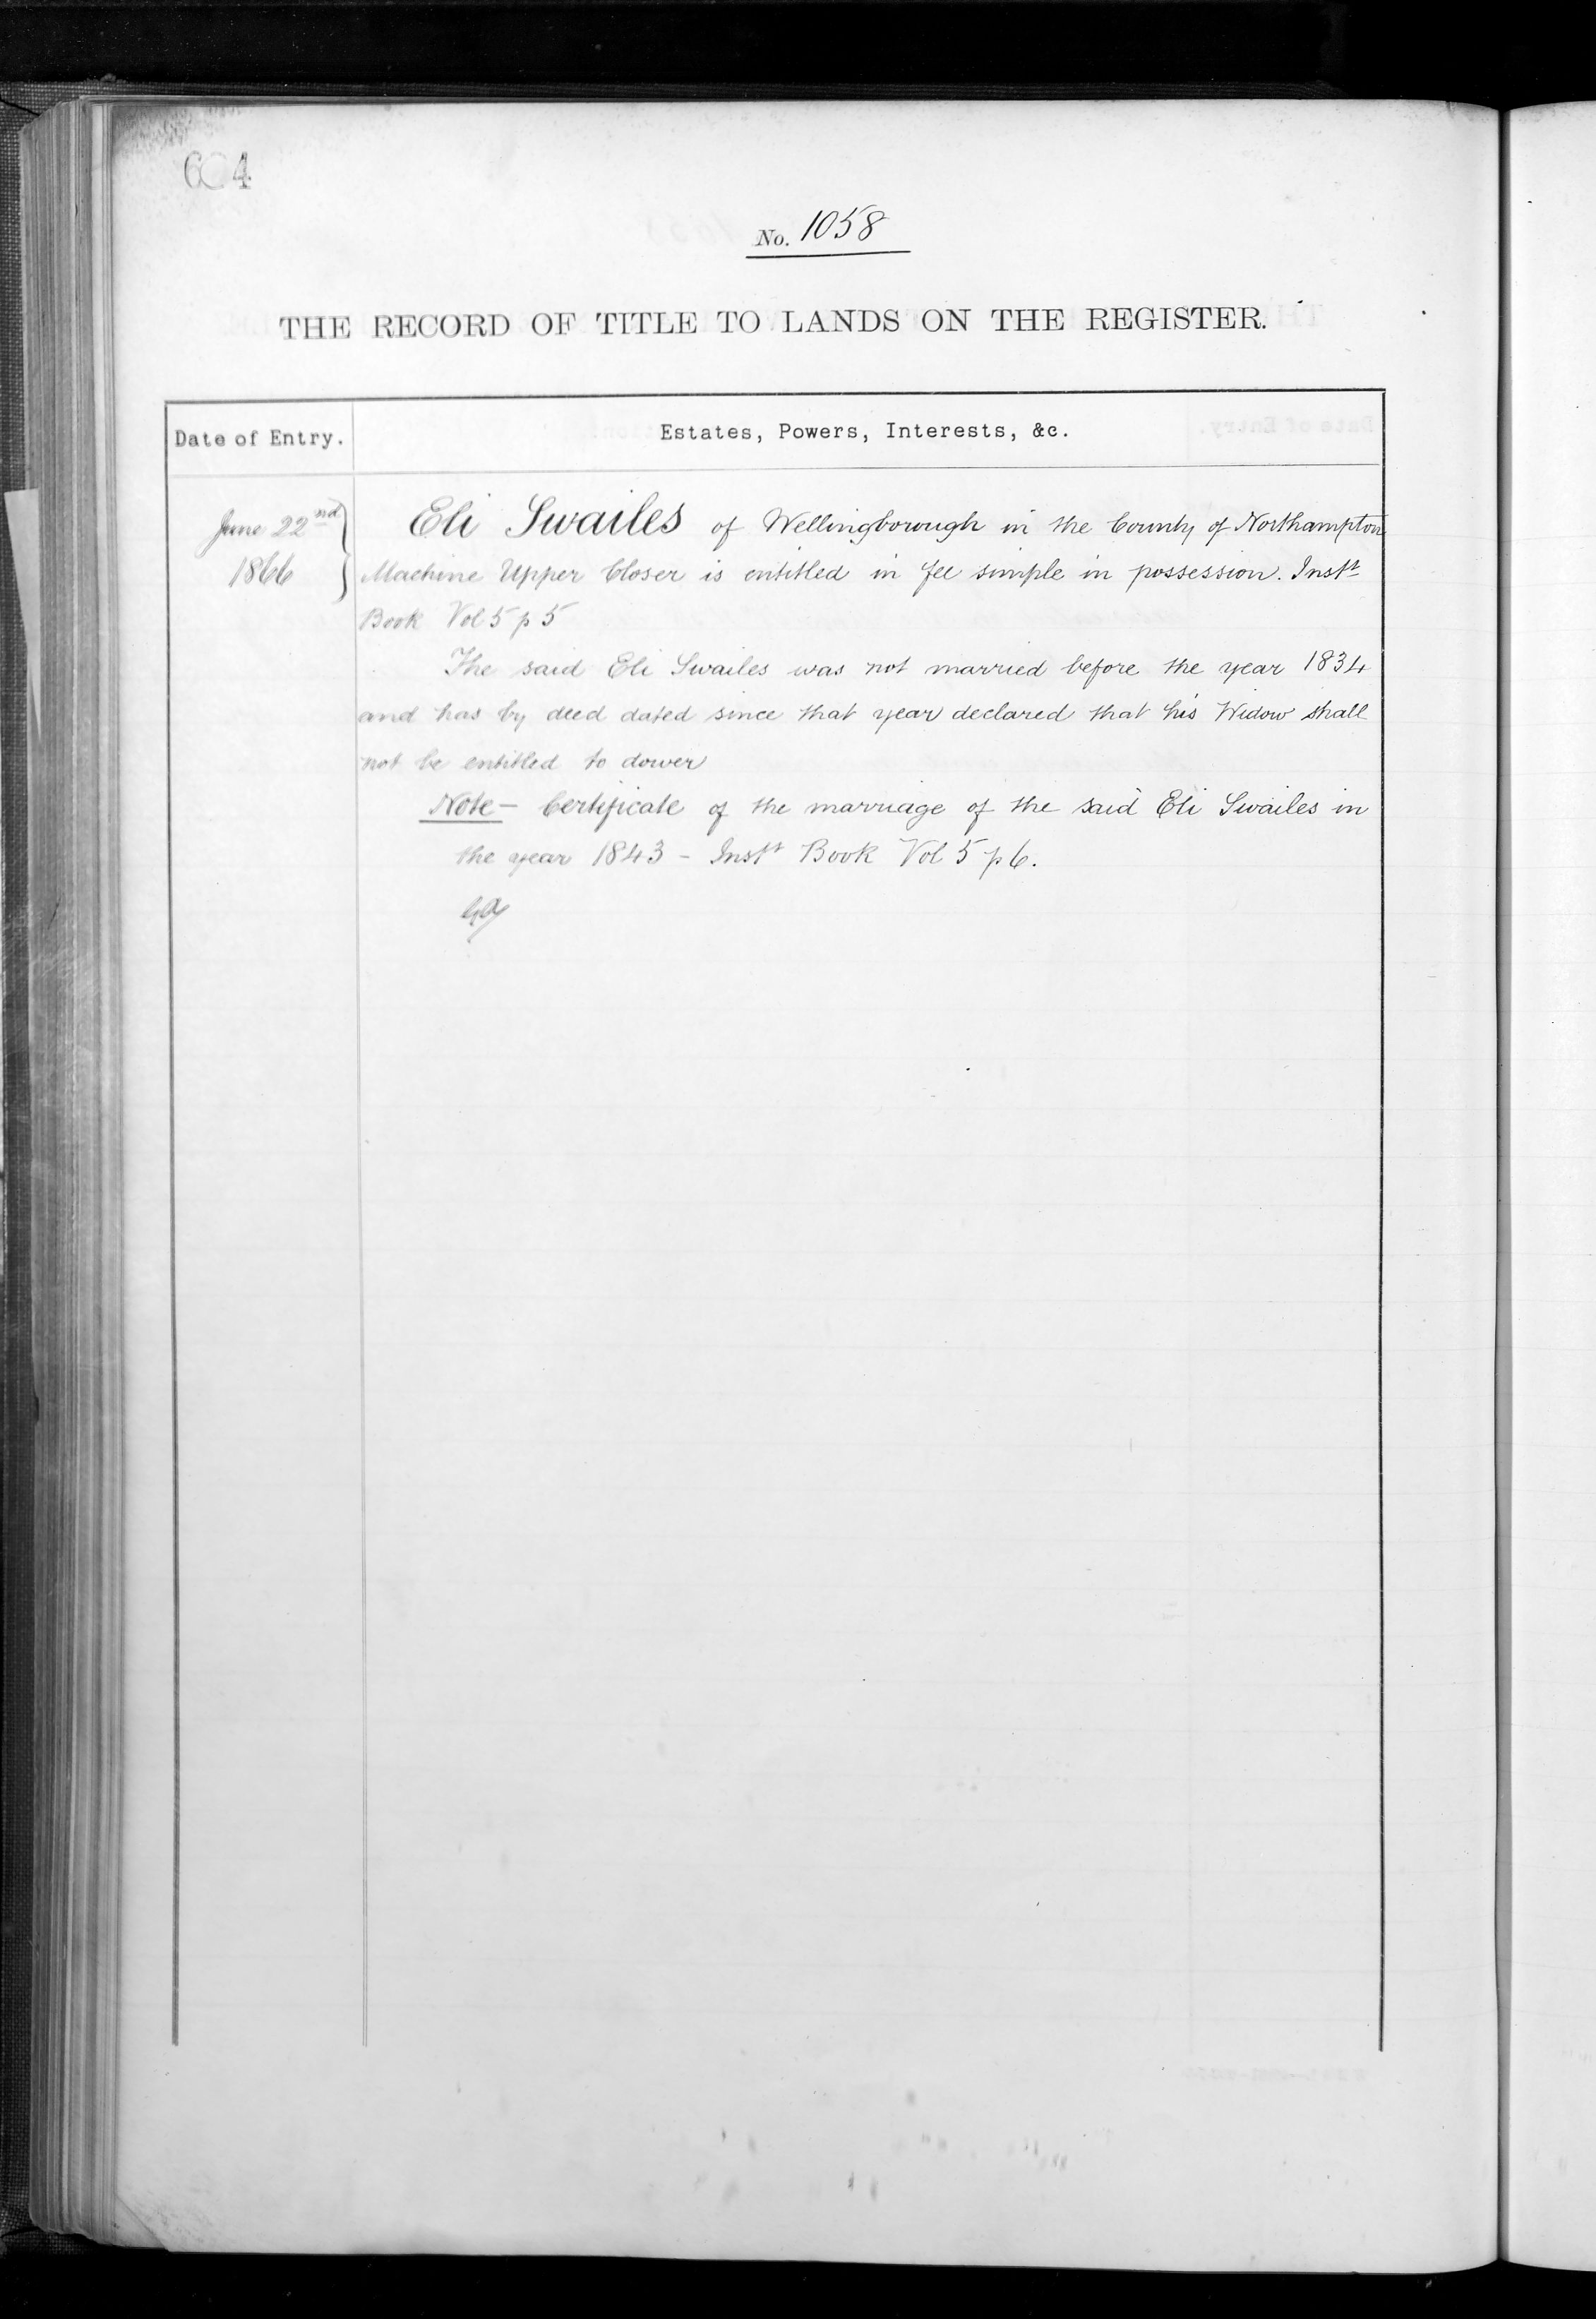 604
No. 1058
THE RECORD OF TITLE TO LANDS ON THE REGISTER.
Date of Entry.
Estates, Powers, Interests, &c.
June 22nd
1866
Eli Swailes of Wellingborough in the County of Northampton
Machine Upper Closer is entitled in fee simple in possession. Instt
Book Vol 5 p 5
The said Eli Swailes was not married before the year 1834
and has by deed dated since that year declared that his Widow shall
not be entitled to dower
Note – Certificate of the marriage of the said Eli Swailes in
the year 1843 – Instt Book Vol 5 p 6.